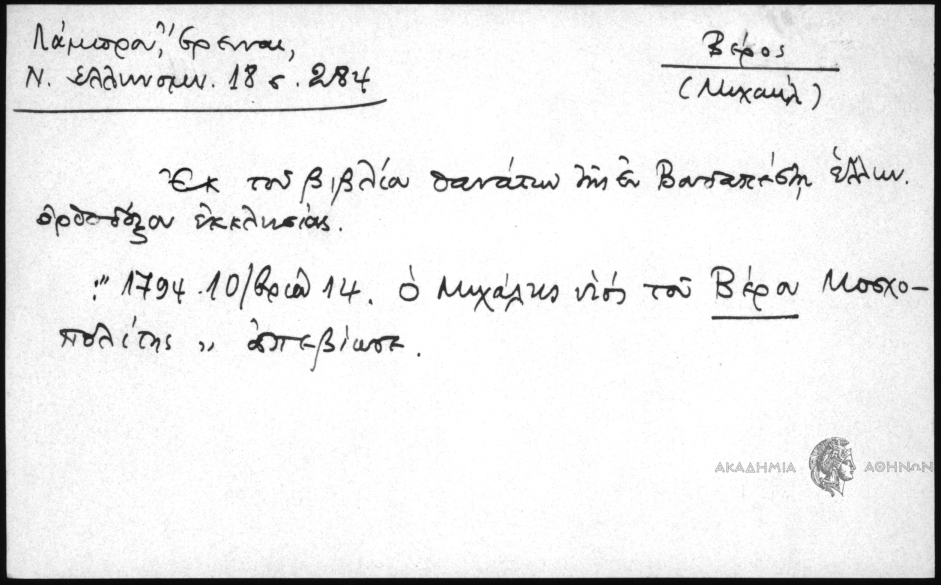 Λάμπρου, Ἔρευναι,
Ν. Ἑλληνομν. 18 σ. 284
Βέρος
(Μιχαήλ)
Ἐκ τοῦ βιβλίου θανάτων τῆς ἐν Βουδαπέστῃ ἑλλην.
ὀρθοδόξου ἐκκλησίας.
"1794 10/βρίου 14. ὁ Μιχάλης υἱός τοῦ Βέρου Μοσχο-
πολίτης " ἀπεβίωσε.
ΑΚΑΔΗΜΙΑ ΑΘΗΝΩΝ